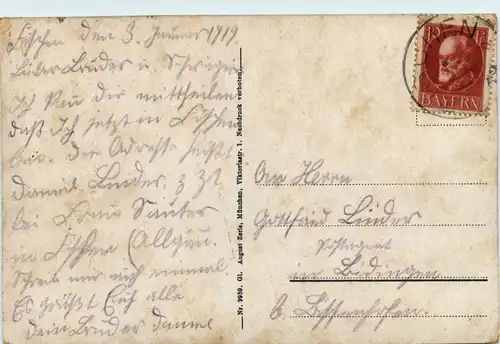 Füssen den 3. Januar 1919.
Lieber Bruder u. Schwägerin
Ich kan dir mittheilen
daß Ich jetzt in Füssen
bin. Die Adresse heißt
Daniel Linder z. Zt.
bei Frau Sauter
in Füssen (Allgäu.
Schreib mir auch einmal.
Es grüßt Euch alle
dein Bruder Daniel
Nr. 9959. Gl. August Zerle, München, Viktoriastr. 1. Nachdruck verboten.
10 Pf
BAYERN
An Herrn
Gottfried Linder
in Bidingen
b. Bissenhofen.